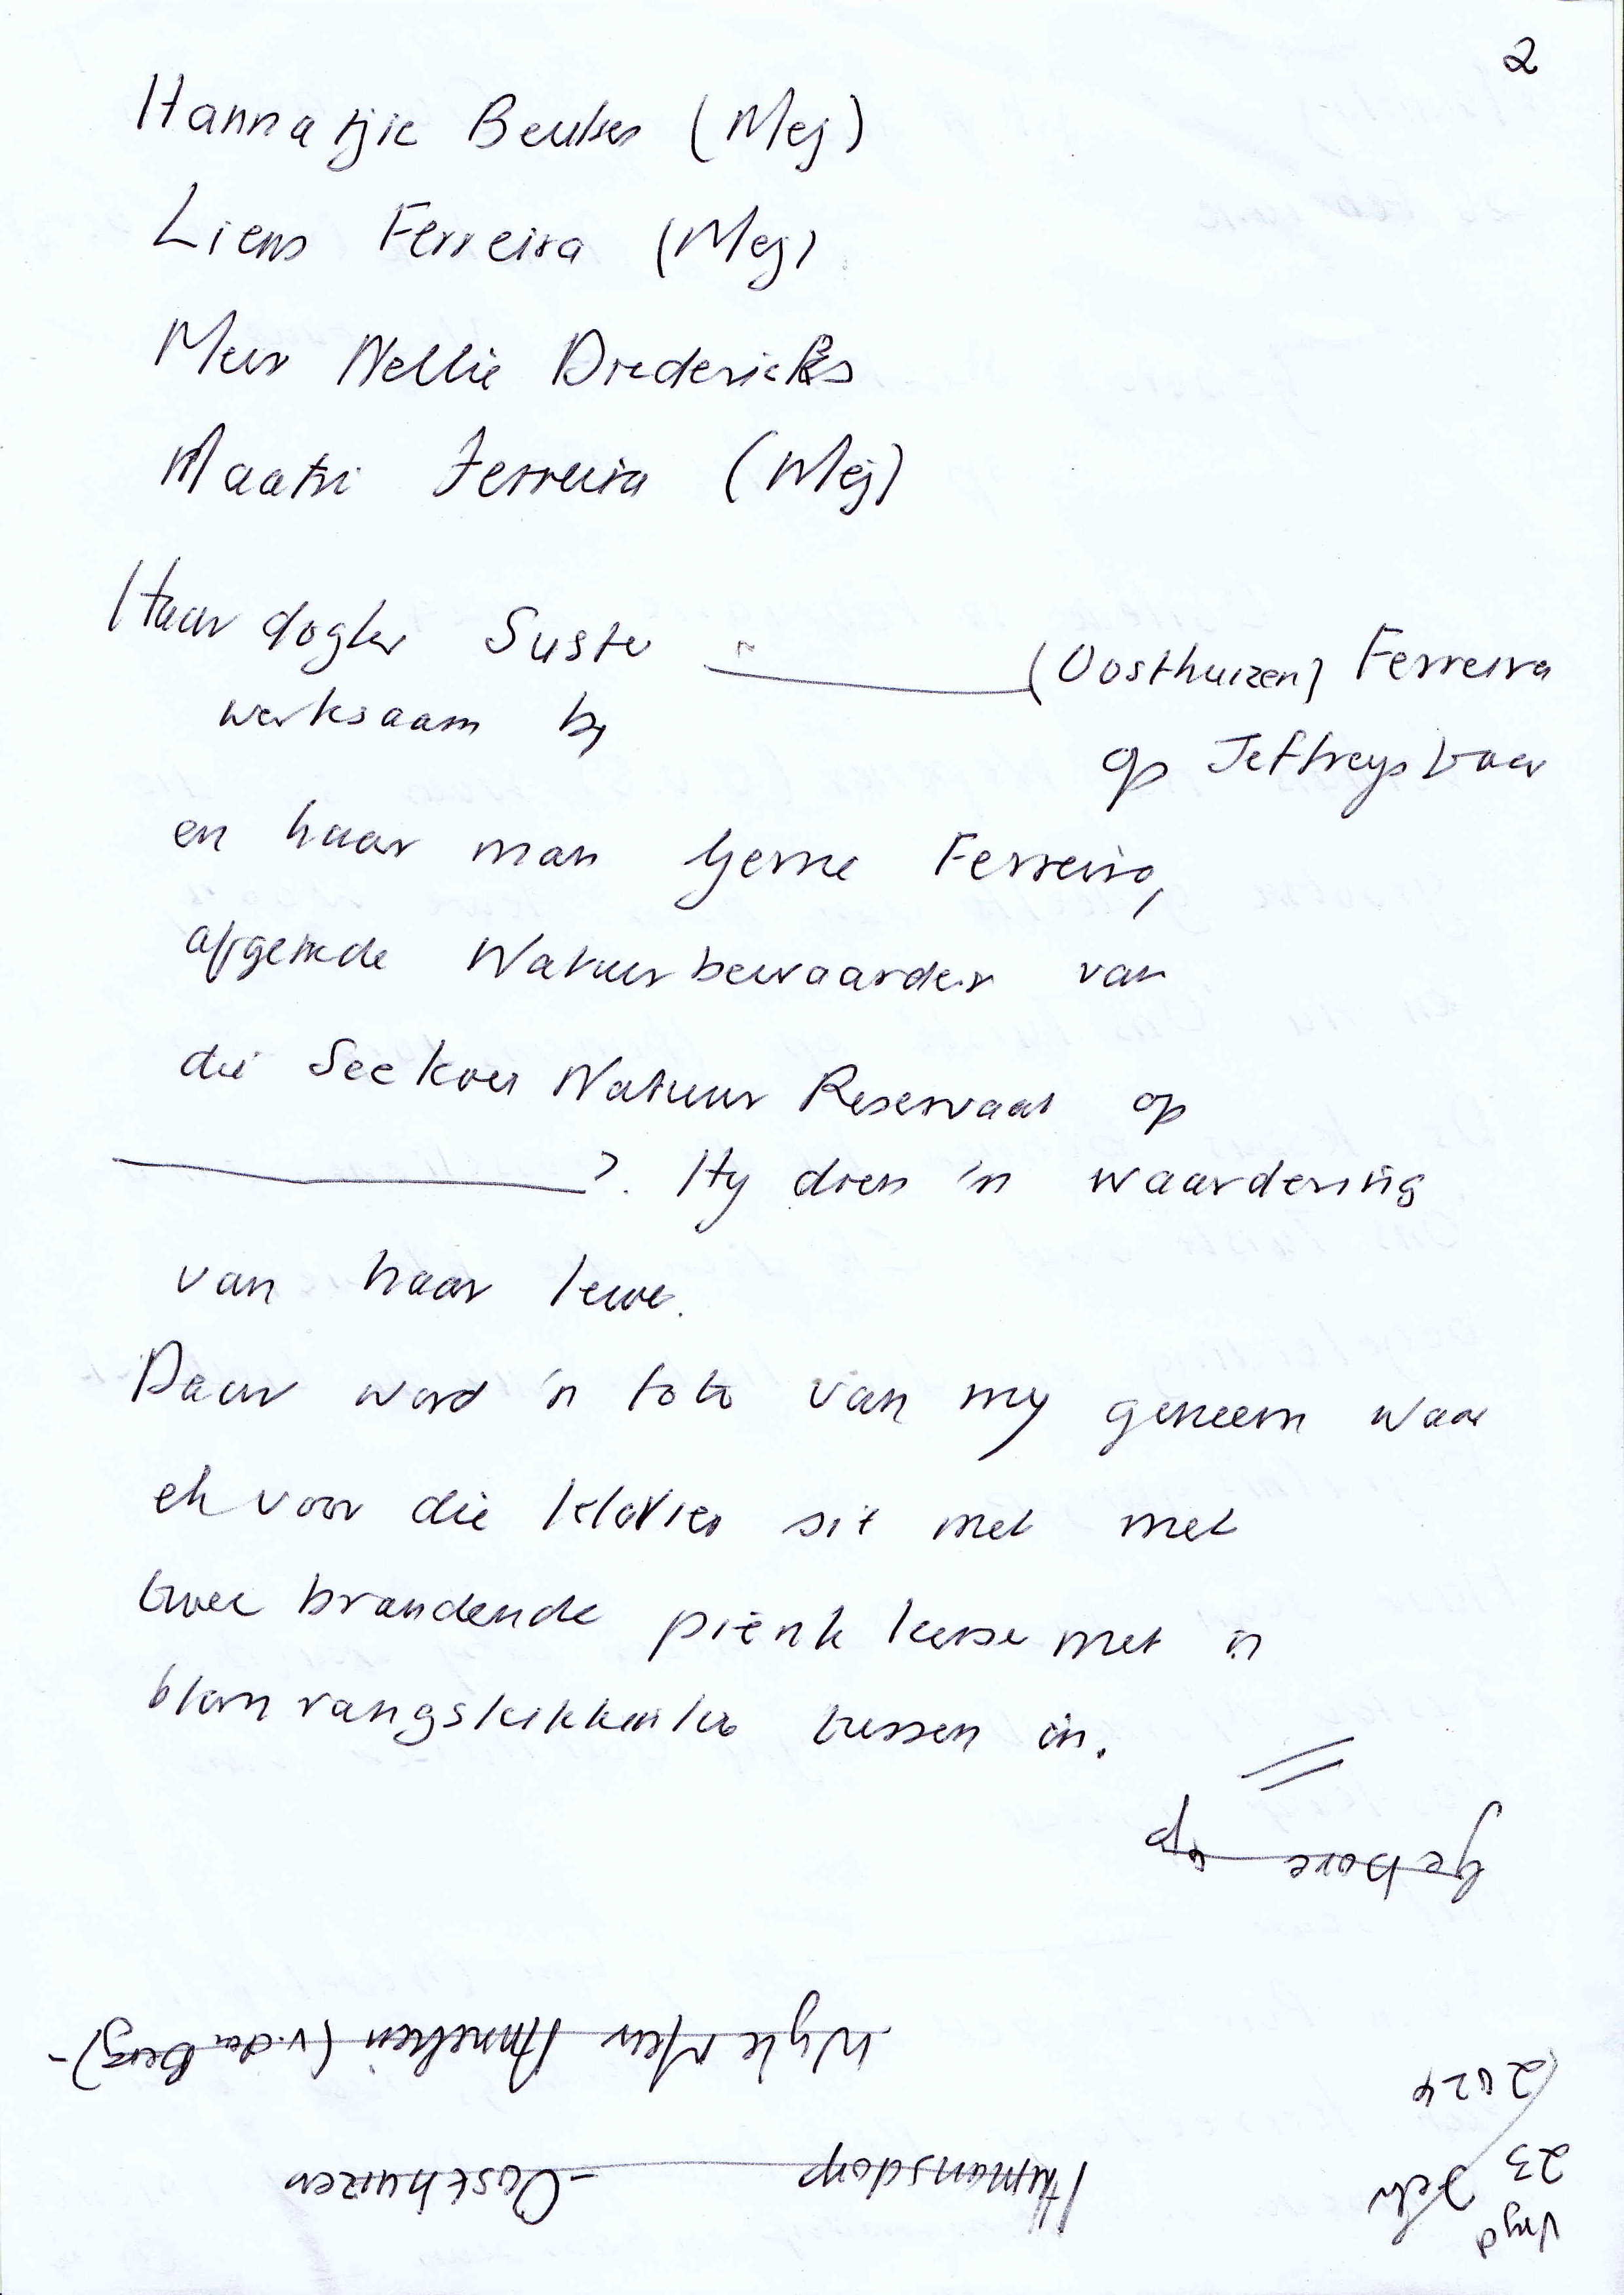 2
Hannatjie Beukes (Mej)
Liens Ferreira (Mej)
Mev Nellie Diedericks
Maatri Ferreira (Mej)
Haar dogter Suster ________ (Oosthuizen) Ferreira
werksaam by
op Jeffreysbaai
en haar man Gerrie Ferreira,
afgetrede Natuurbewaarder van
die Seekoei Natuur Reservaat op
________?. Hy doen 'n waardering
van haar lewe.
Daar word 'n foto van my geneem waar
ek voor die klavier sit met met
twee brandende pienk kerse met 'n
blom rangskikking tussen in.
Vryd
23 Feb
2024
Humansdorp - Oosthuizen
Wyle Mev Annetjien (v.der Berg) -
Gebore op